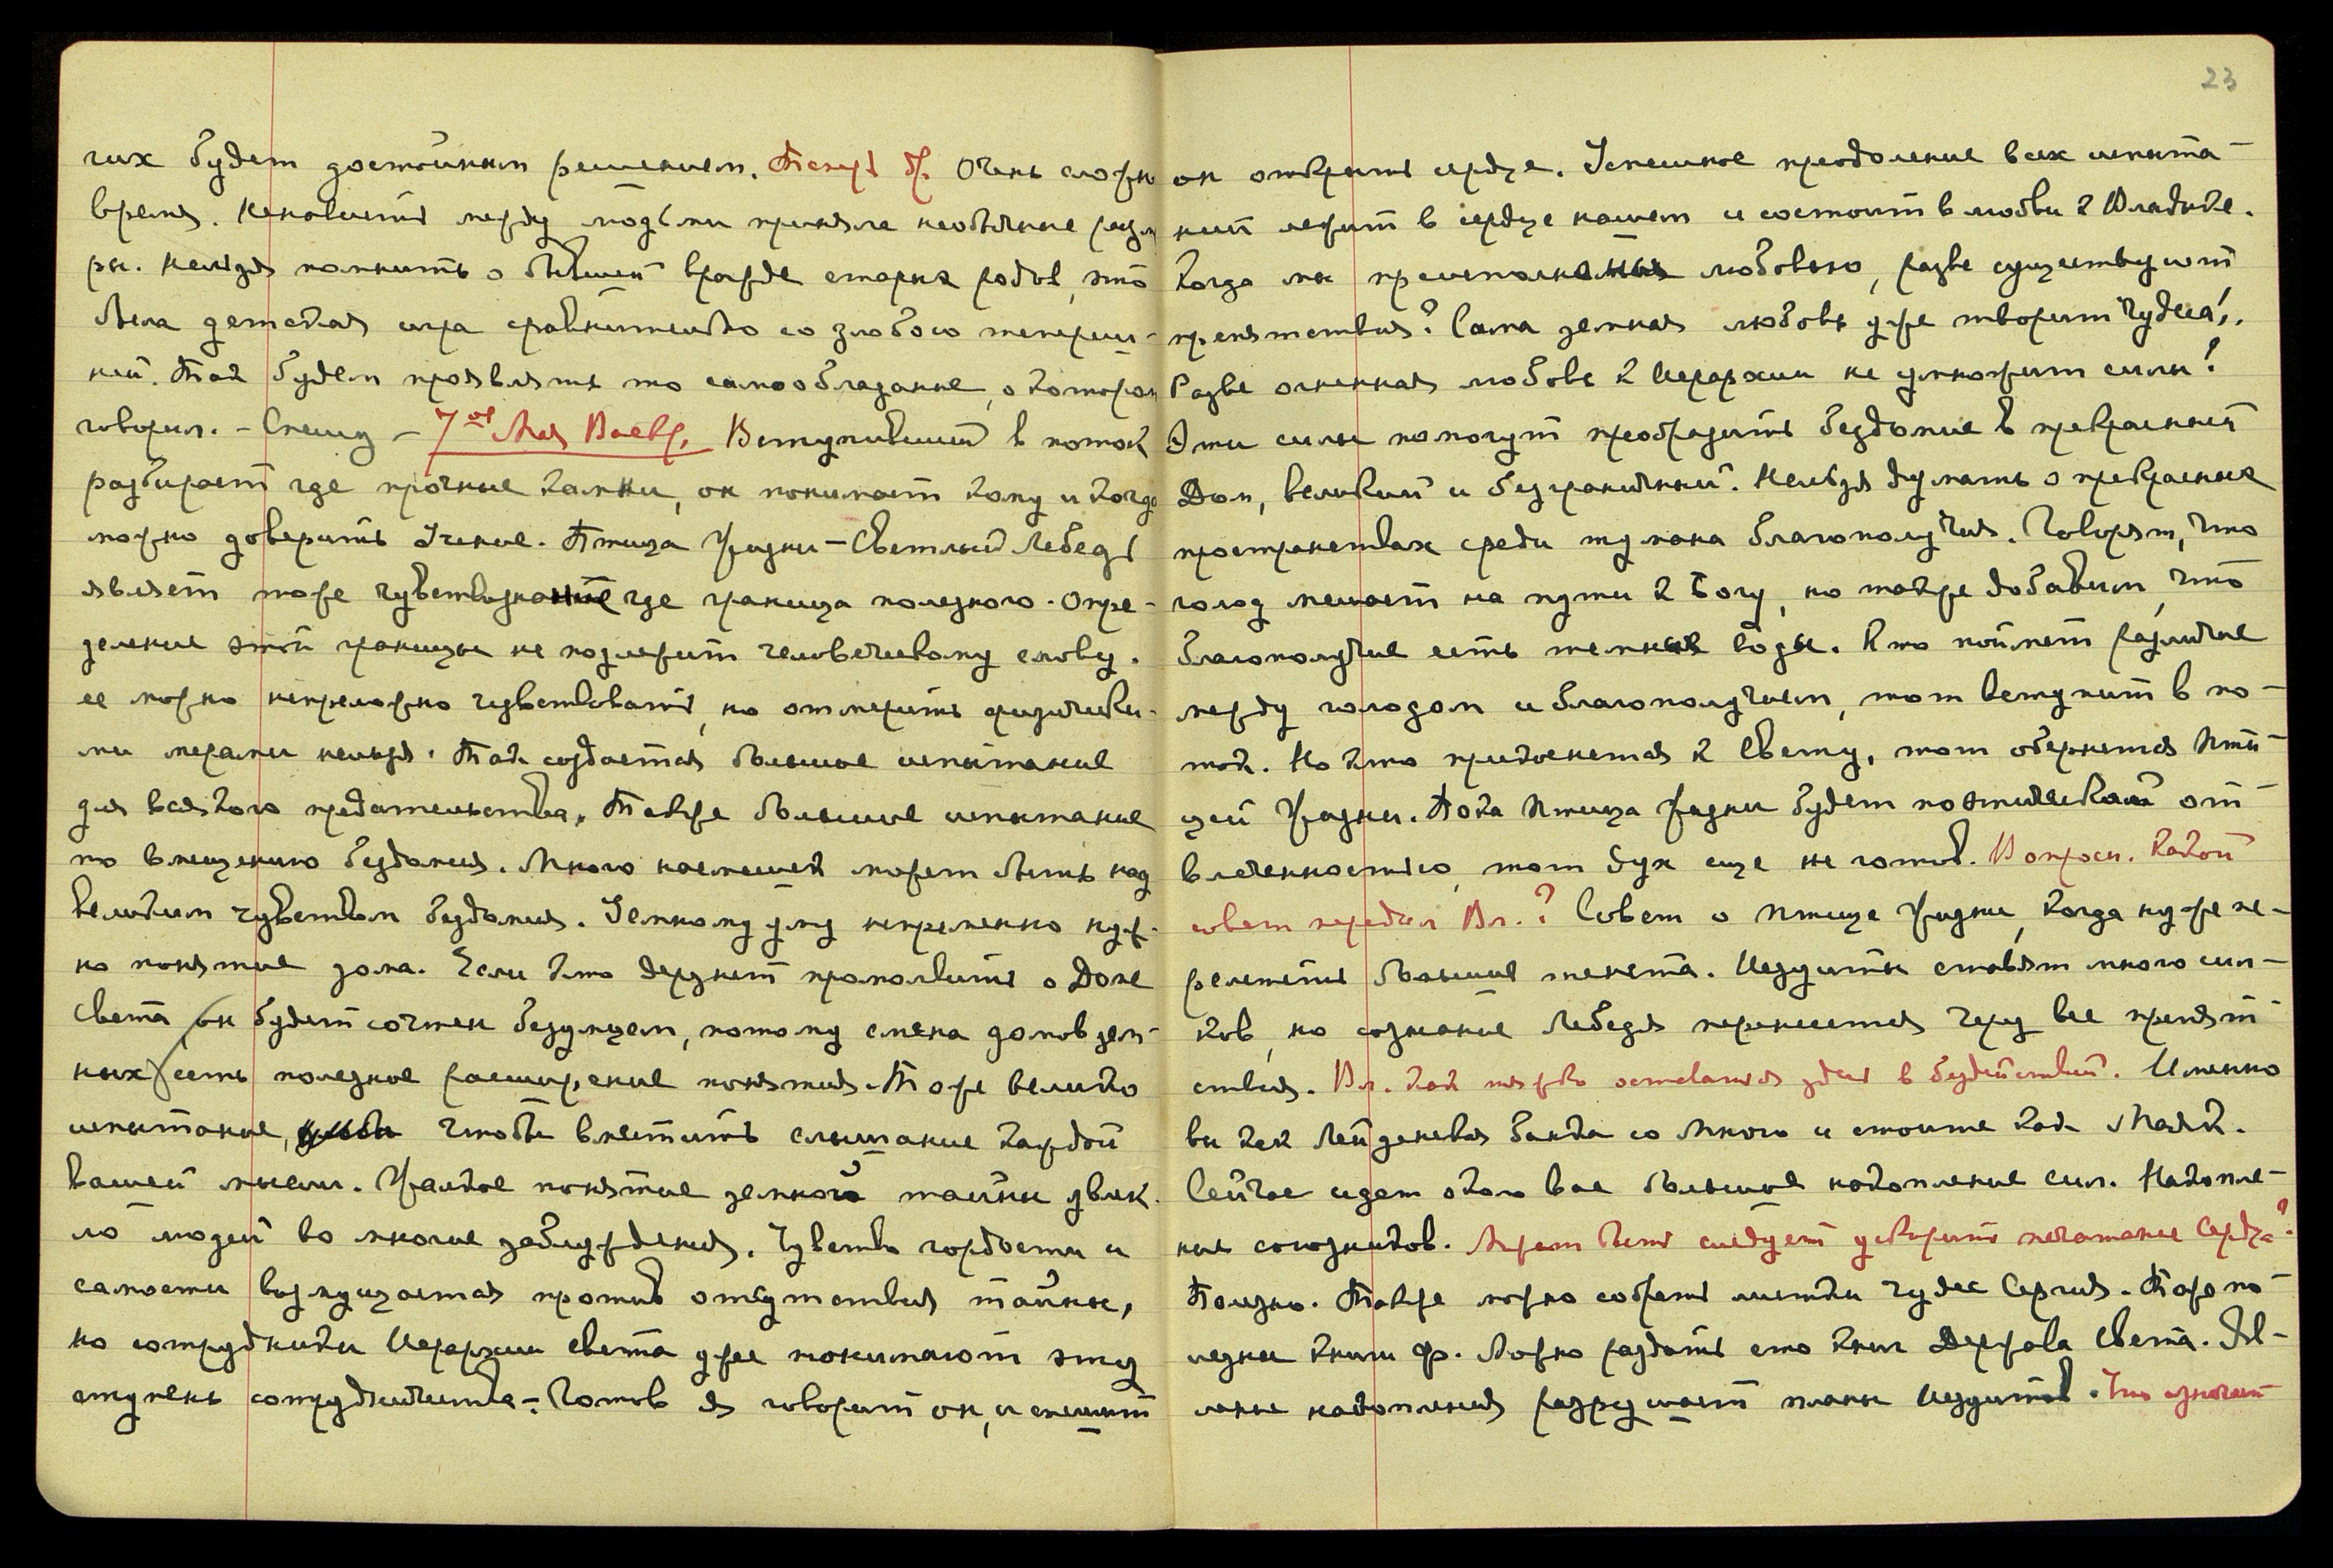 гих будет достойным решением. Очень сложн
время. Ненависть между людьми приняла необычные разм
ры. Нельзя помнить о бывшей вражде старых родов, это
была детская игра сравнительно со злобою тепереш-
ней. Так будем проявлять то самообладание, о котором
говорил. – Спешу – 7ое Мая Воскр. Вступивший в поток
разбирает где прочные камни, он понимает кому и когда
можно доверить Учение. Птица Жизни – Светлый Лебедь
являет тоже чувствознание где граница полезного. Опре-
деление этой границы не подлежит человеческому слову.
ее можно непреложно чувствовать, но отмерить физически-
ми мерами нельзя. Так создается большое испытание
для всякого предательства. Также большое испытание
по вмещению бездомия. Много насмешек может быть над
великим чувством бездомия. Земному уму непременно нуж-
но понятие дома. Если кто дерзнет промолвить о Доме
Света он будет сочтен безумцем, потому смена домов зем-
ных есть полезное расширение понятия. Тоже велико
испытание, чтобы вместить слышание каждой
вашей мысли. Жалкое понятие земной тайны увлек-
ло людей во многие заблуждения. Чувство гордости и
самости возмущается против отсутствия тайны,
но сотрудники Иерархии Света уже понимают эту
ступень сотрудничества – Готов я говорит он, и спешит
23
он открыть сердце. Успешное преодоление всех испыта-
ний лежит в сердце нашем и состоит в любви к Владыке.
Когда мы преисполнены любовью, разве существуют
препятствия? Сама земная любовь уже творит чудеса!
Разве огненная любовь к Иерархии не умножит силы?
Эти силы помогут преобразить бездомие в прекрасный
Дом, великий и безграничный. Нельзя думать о прекрасных
пространствах среди тумана благополучия. Говорят, что
голод мешает на пути к Богу, но также добавим, что
благополучие есть темные воды. Кто поймет различие
между голодом и благополучием, тот вступит в по-
ток. Но кто прикоснется к Свету, тот обернется Пти-
цей Жизни. Пока Птица Жизни будет поэтической от-
влеченностью, тот дух еще не готов. Вопросы. Какой
совет передал Вл.? Совет о Птице Жизни, когда нужно пе-
релететь большие тенета. Иезуиты ставят много сил-
ков, но сознание Лебедя перенесется через все препят-
ствия. Вл. как тяжко оставаться здесь в бездействии. Именно
вы как Лейденская банка со Мною и стоите как Маяк.
Сейчас идет около вас большое накопление сил. Накопле-
ние союзников. Может быть следует ускорить печатание Сердца?
Полезно. Также можно собрать листки чудес Сергия. Тоже по-
лезны книги Ф. Можно раздать сто книг Держава Света. Яв-
ление накопления разрушает планы Иезуитов. Что означает